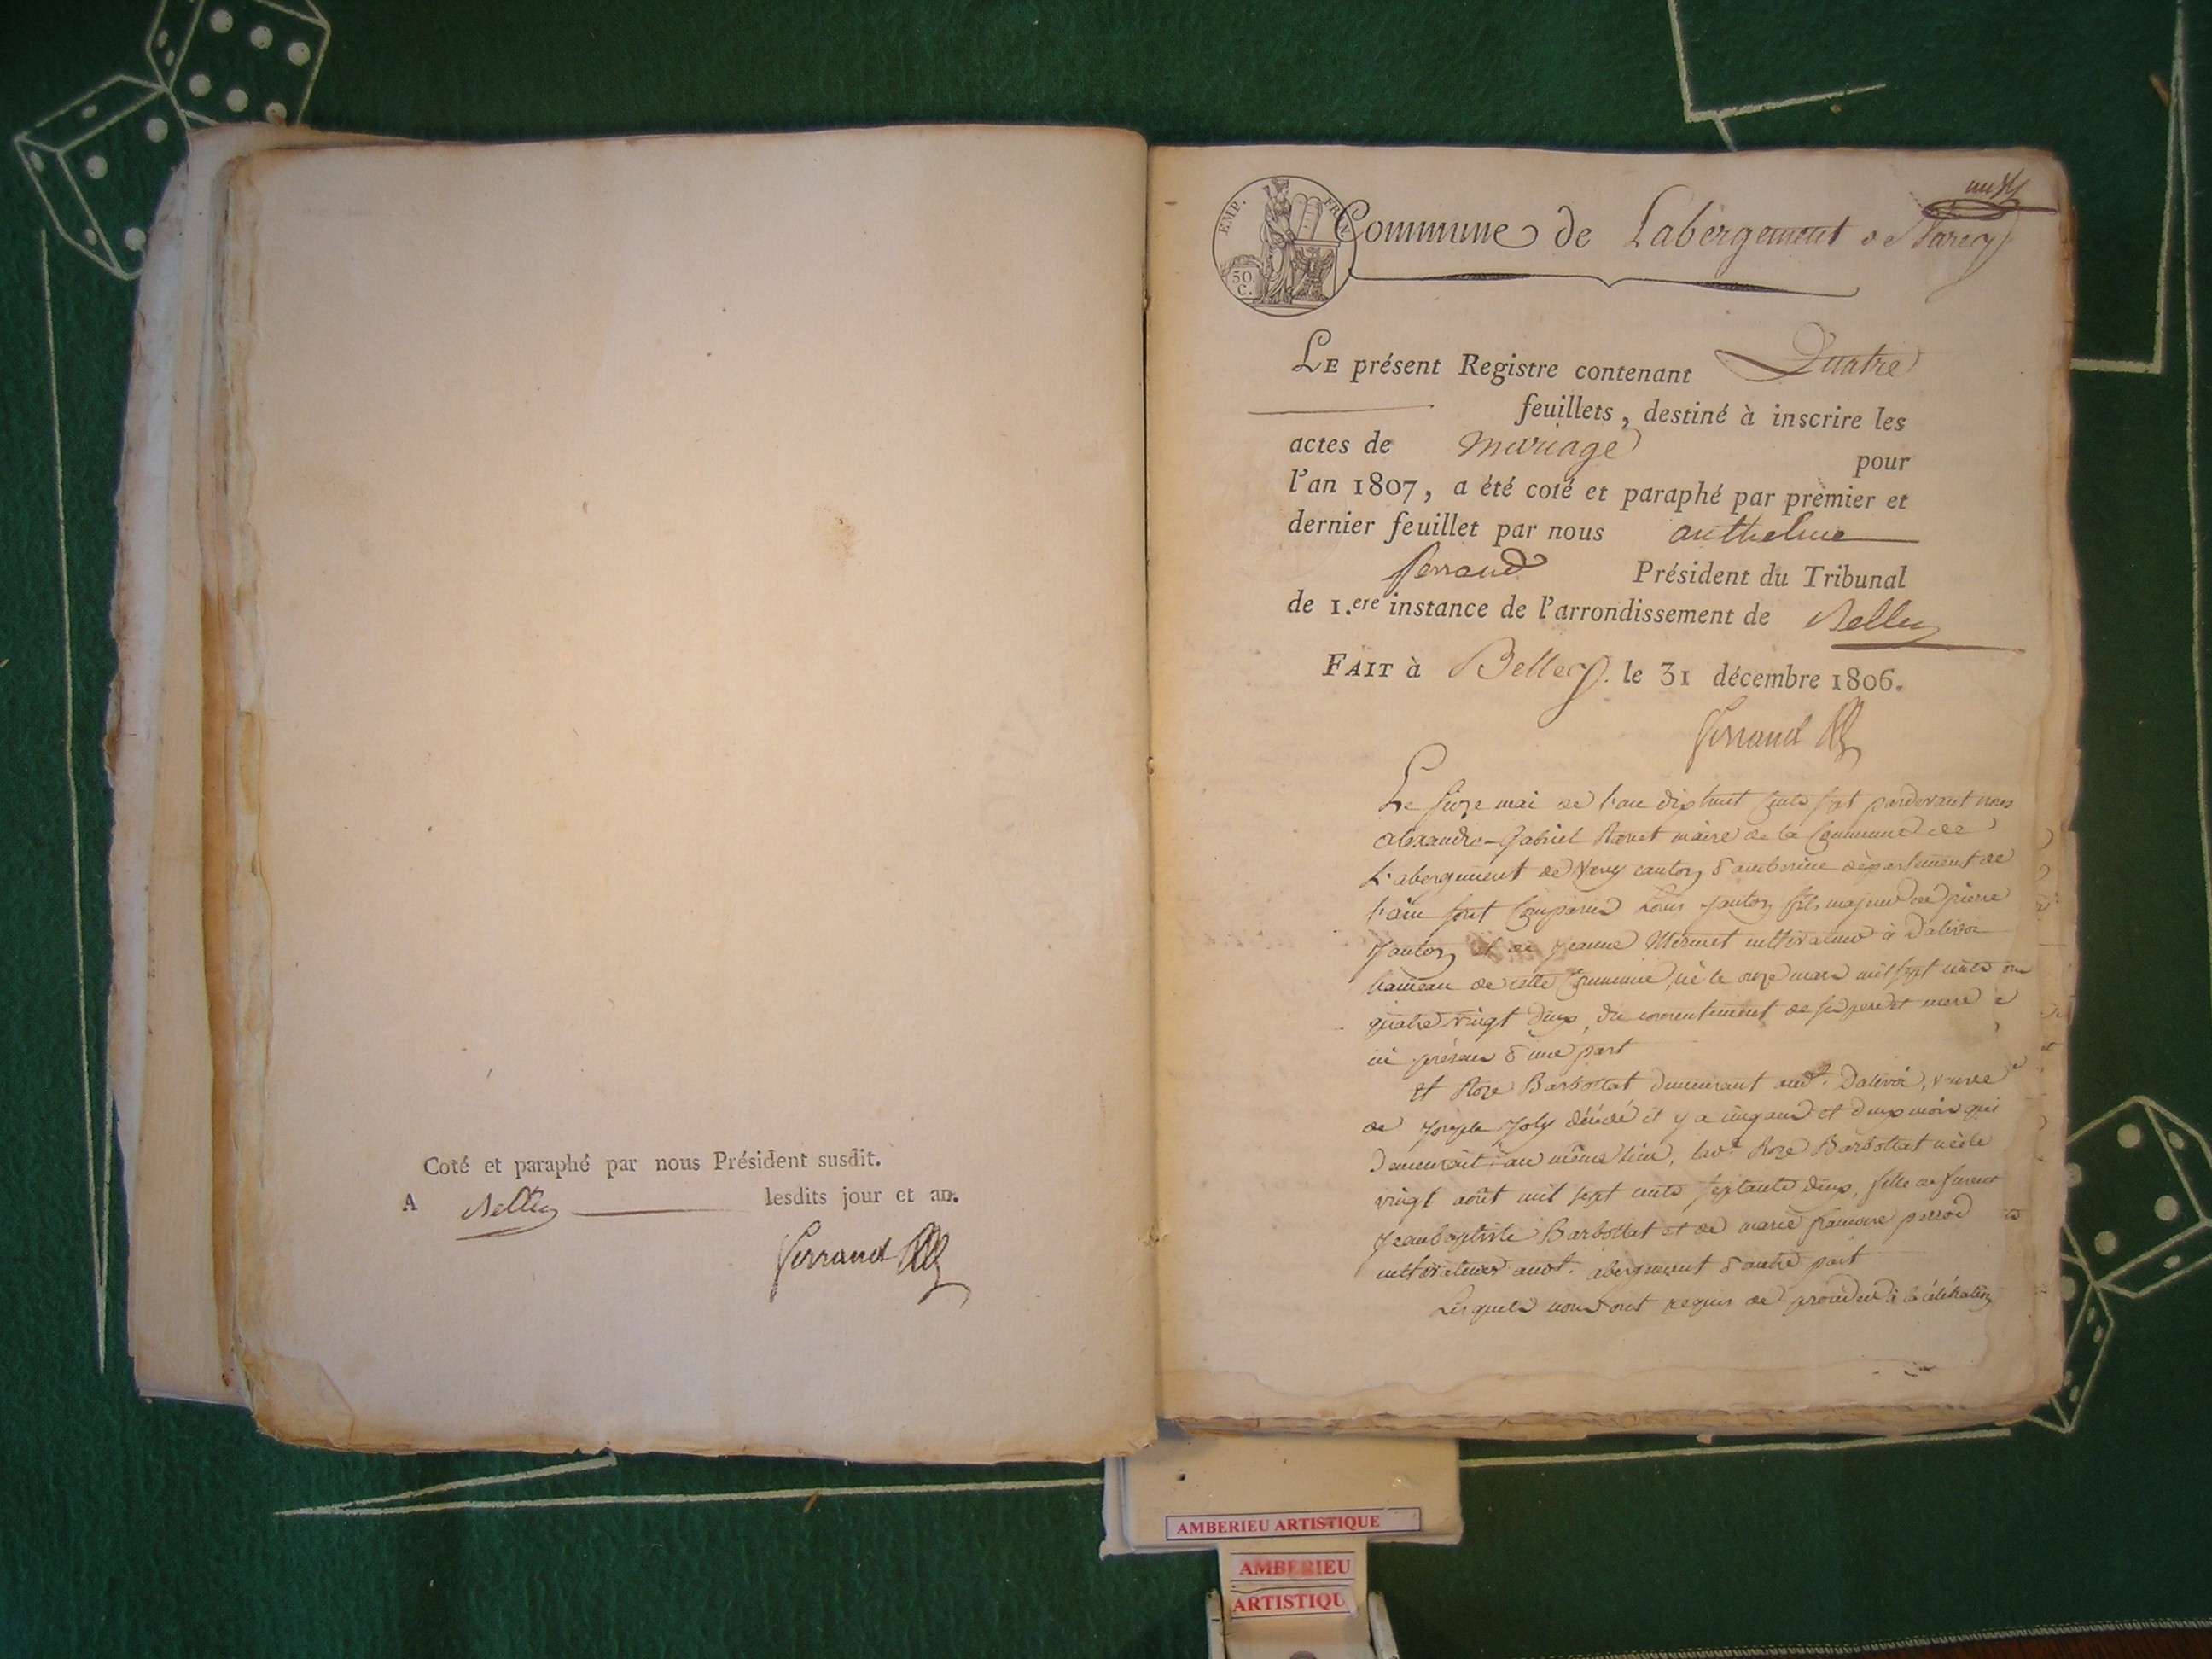 Coté et paraphé par nous Président susdit.
A Belley lesdits jour et an.
Ferrand
EMP. FRAN.
50 C.
Commune de Labergement de Varey
LE présent Registre contenant Quatre
feuillets, destiné à inscrire les
actes de Mariage pour
l'an 1807, a été coté et paraphé par premier et
dernier feuillet par nous anthelme
ferrand Président du Tribunal
de 1.ere instance de l'arrondissement de Belley
FAIT à Belley. le 31 décembre 1806.
Ferrand
Le seize mai de l'an dix huit cents sept pardevant nous
alexandre-Gabriel maire de la Commune de
L'abergement de Varey canton d'amberieu département de
l'ain sont Comparus Louis Janton fils majeur de pierre
Janton et de Jeanne Mermet cultivateurs à Dalivoi
hameau de cette Commune, né le onze mars mil sept cents
quatre vingt deux, du consentement de ses pere et mere
ici présens d'une part
et Roze Barbollat demeurant aud.t Dalivoi, veuve
de Joseph Joly décédé il y a cinq ans et deux mois qui
Demeurait au même lieu, lad.e Roze Barbollat née le
vingt août mil sept cents septante deux, fille de furent
Jean baptiste Barbollat et de marie françoise perrod
cultivateurs aud.t abergement d'autre part
Lesquels nous ont requis de proceder à la célébration
AMBERIEU ARTISTIQUE
AMBERIEU
ARTISTIQU